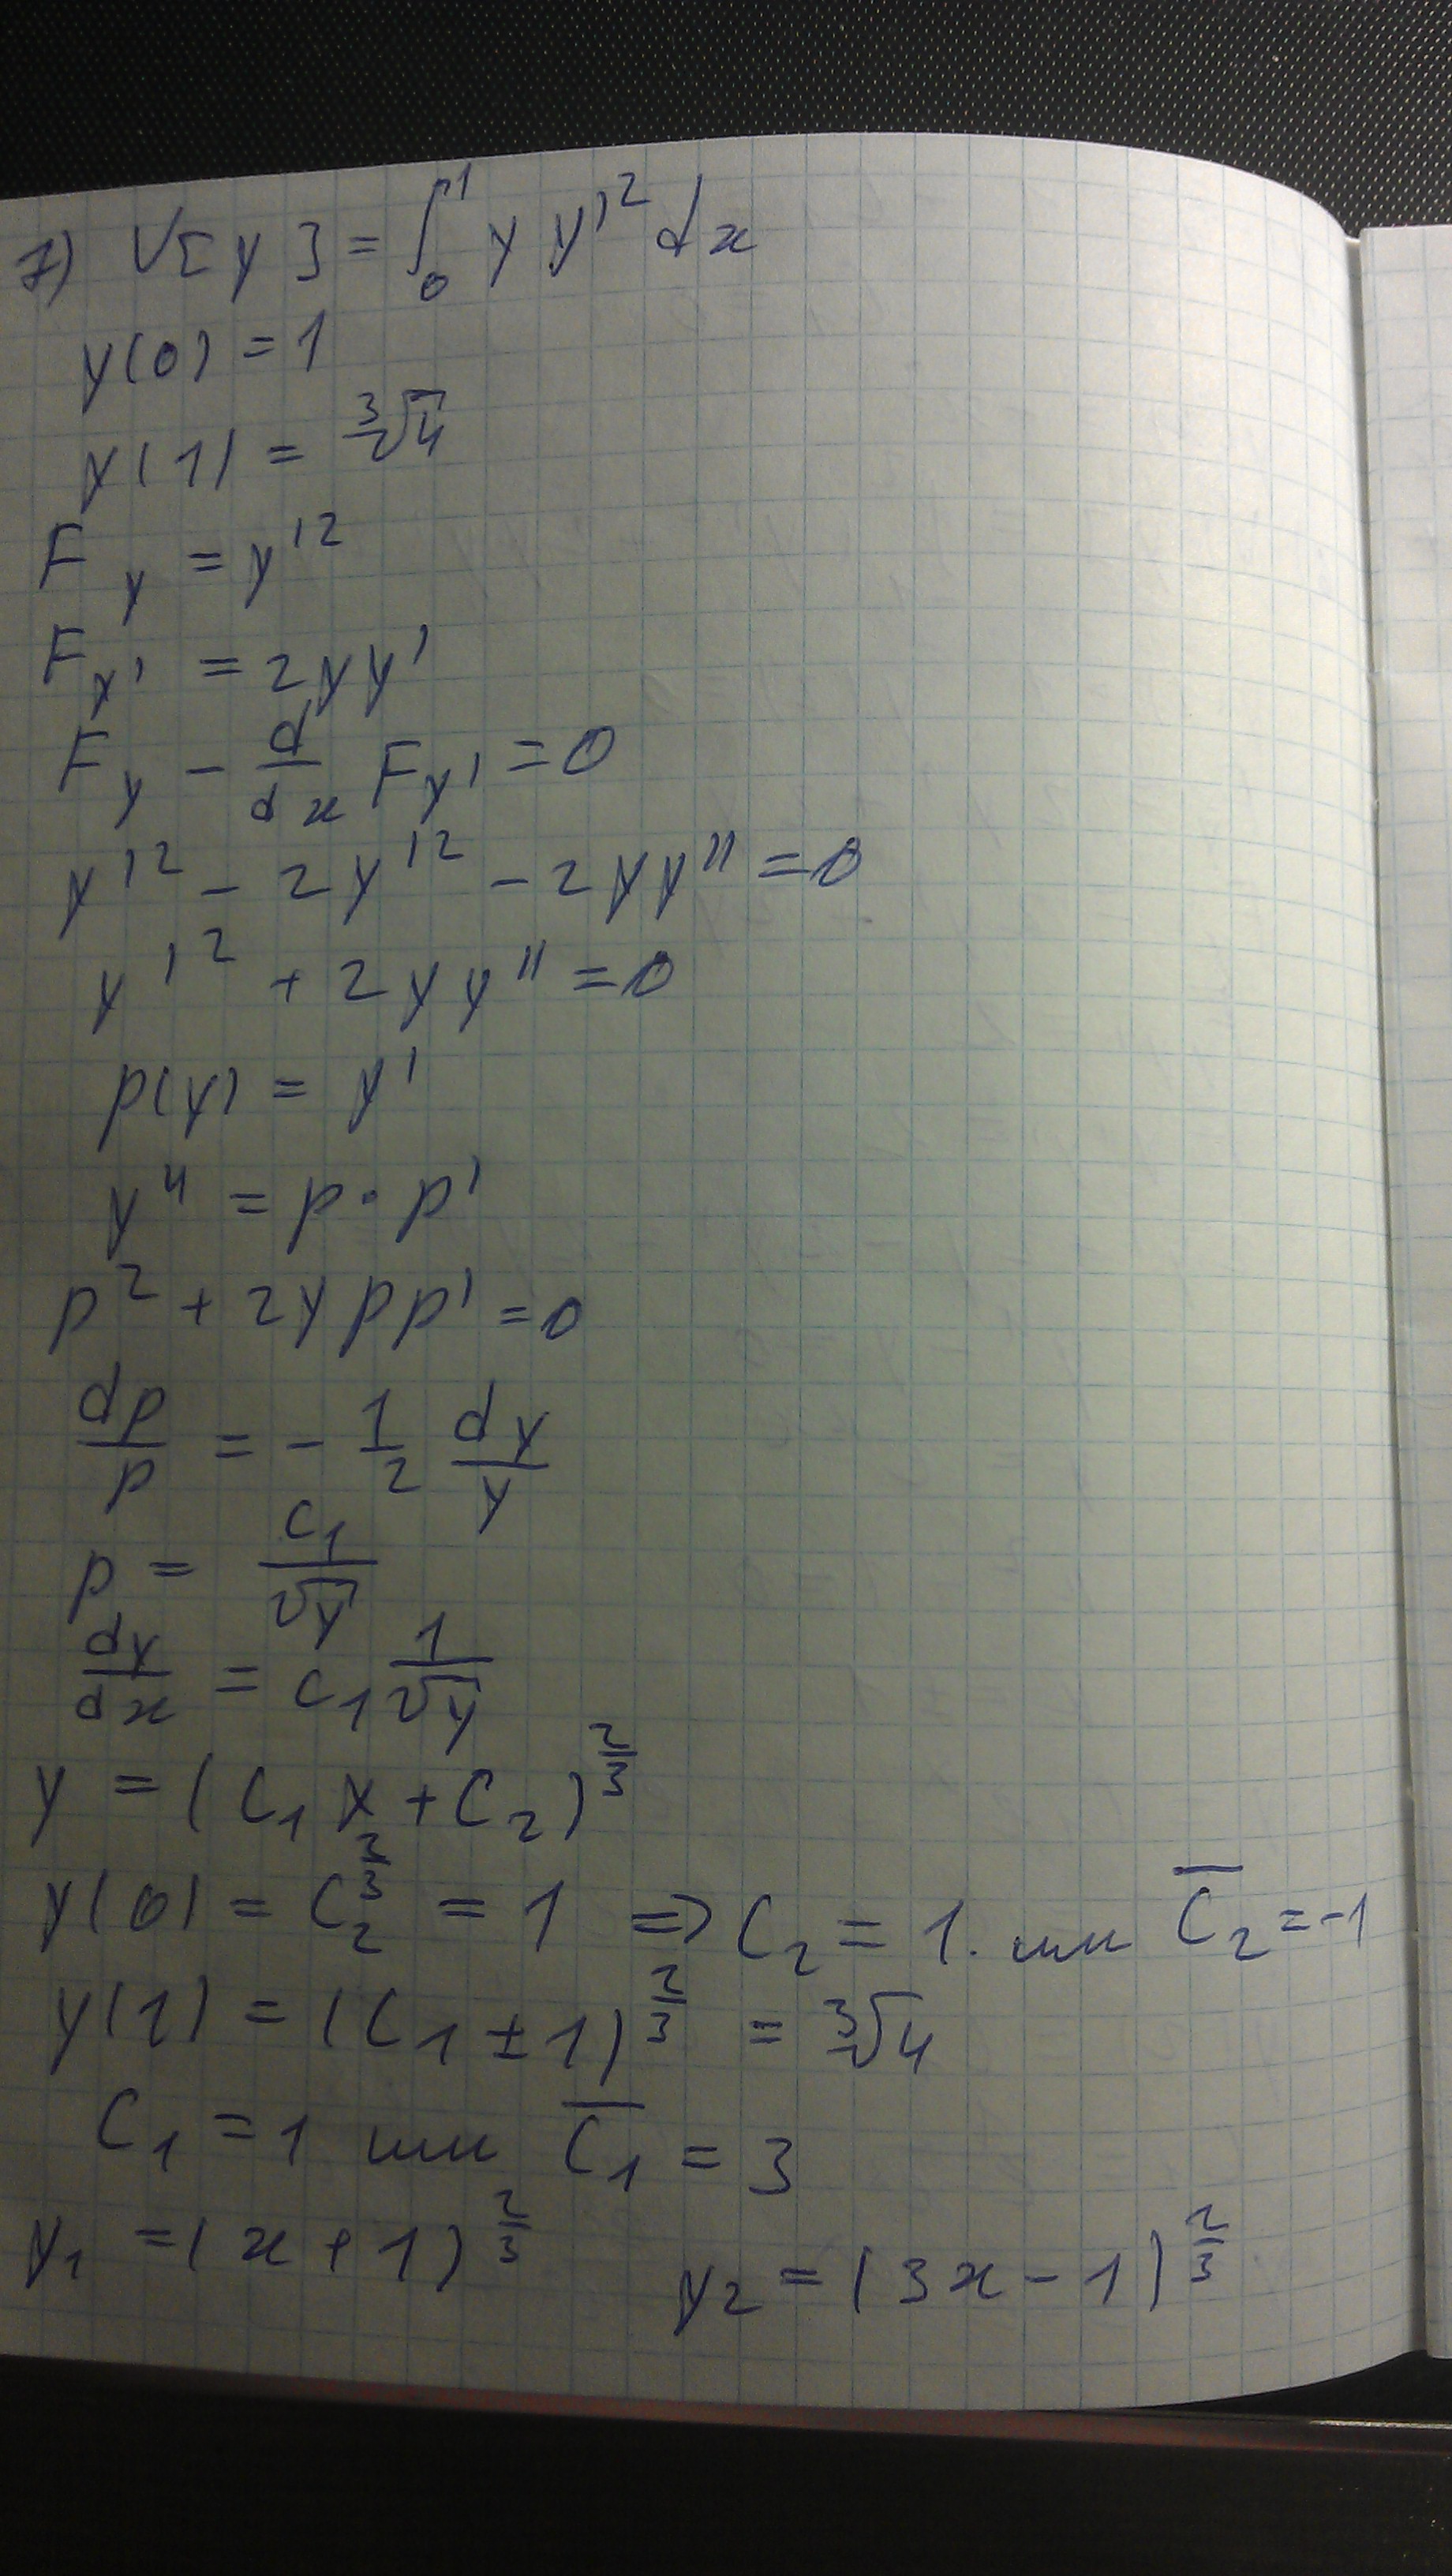 7) V[y] = ∫₀¹ y y'² dx
y(0) = 1
y(1) = ∛4
F_y = y'²
F_y' = 2yy'
F_y - d/dx F_y' = 0
y'² - 2y'² - 2yy'' = 0
y'² + 2yy'' = 0
p(y) = y'
y'' = p · p'
p² + 2ypp' = 0
dp/p = - 1/2 dy/y
p = C₁/√y
dy/dx = C₁ 1/√y
y = (C₁x + C₂)^(2/3)
y(0) = C₂^(2/3) = 1 => C₂ = 1. или C̅₂ = -1
y(1) = (C₁ ± 1)^(2/3) = ∛4
C₁ = 1 или C̅₁ = 3
y₁ = (x + 1)^(2/3) y₂ = (3x - 1)^(2/3)